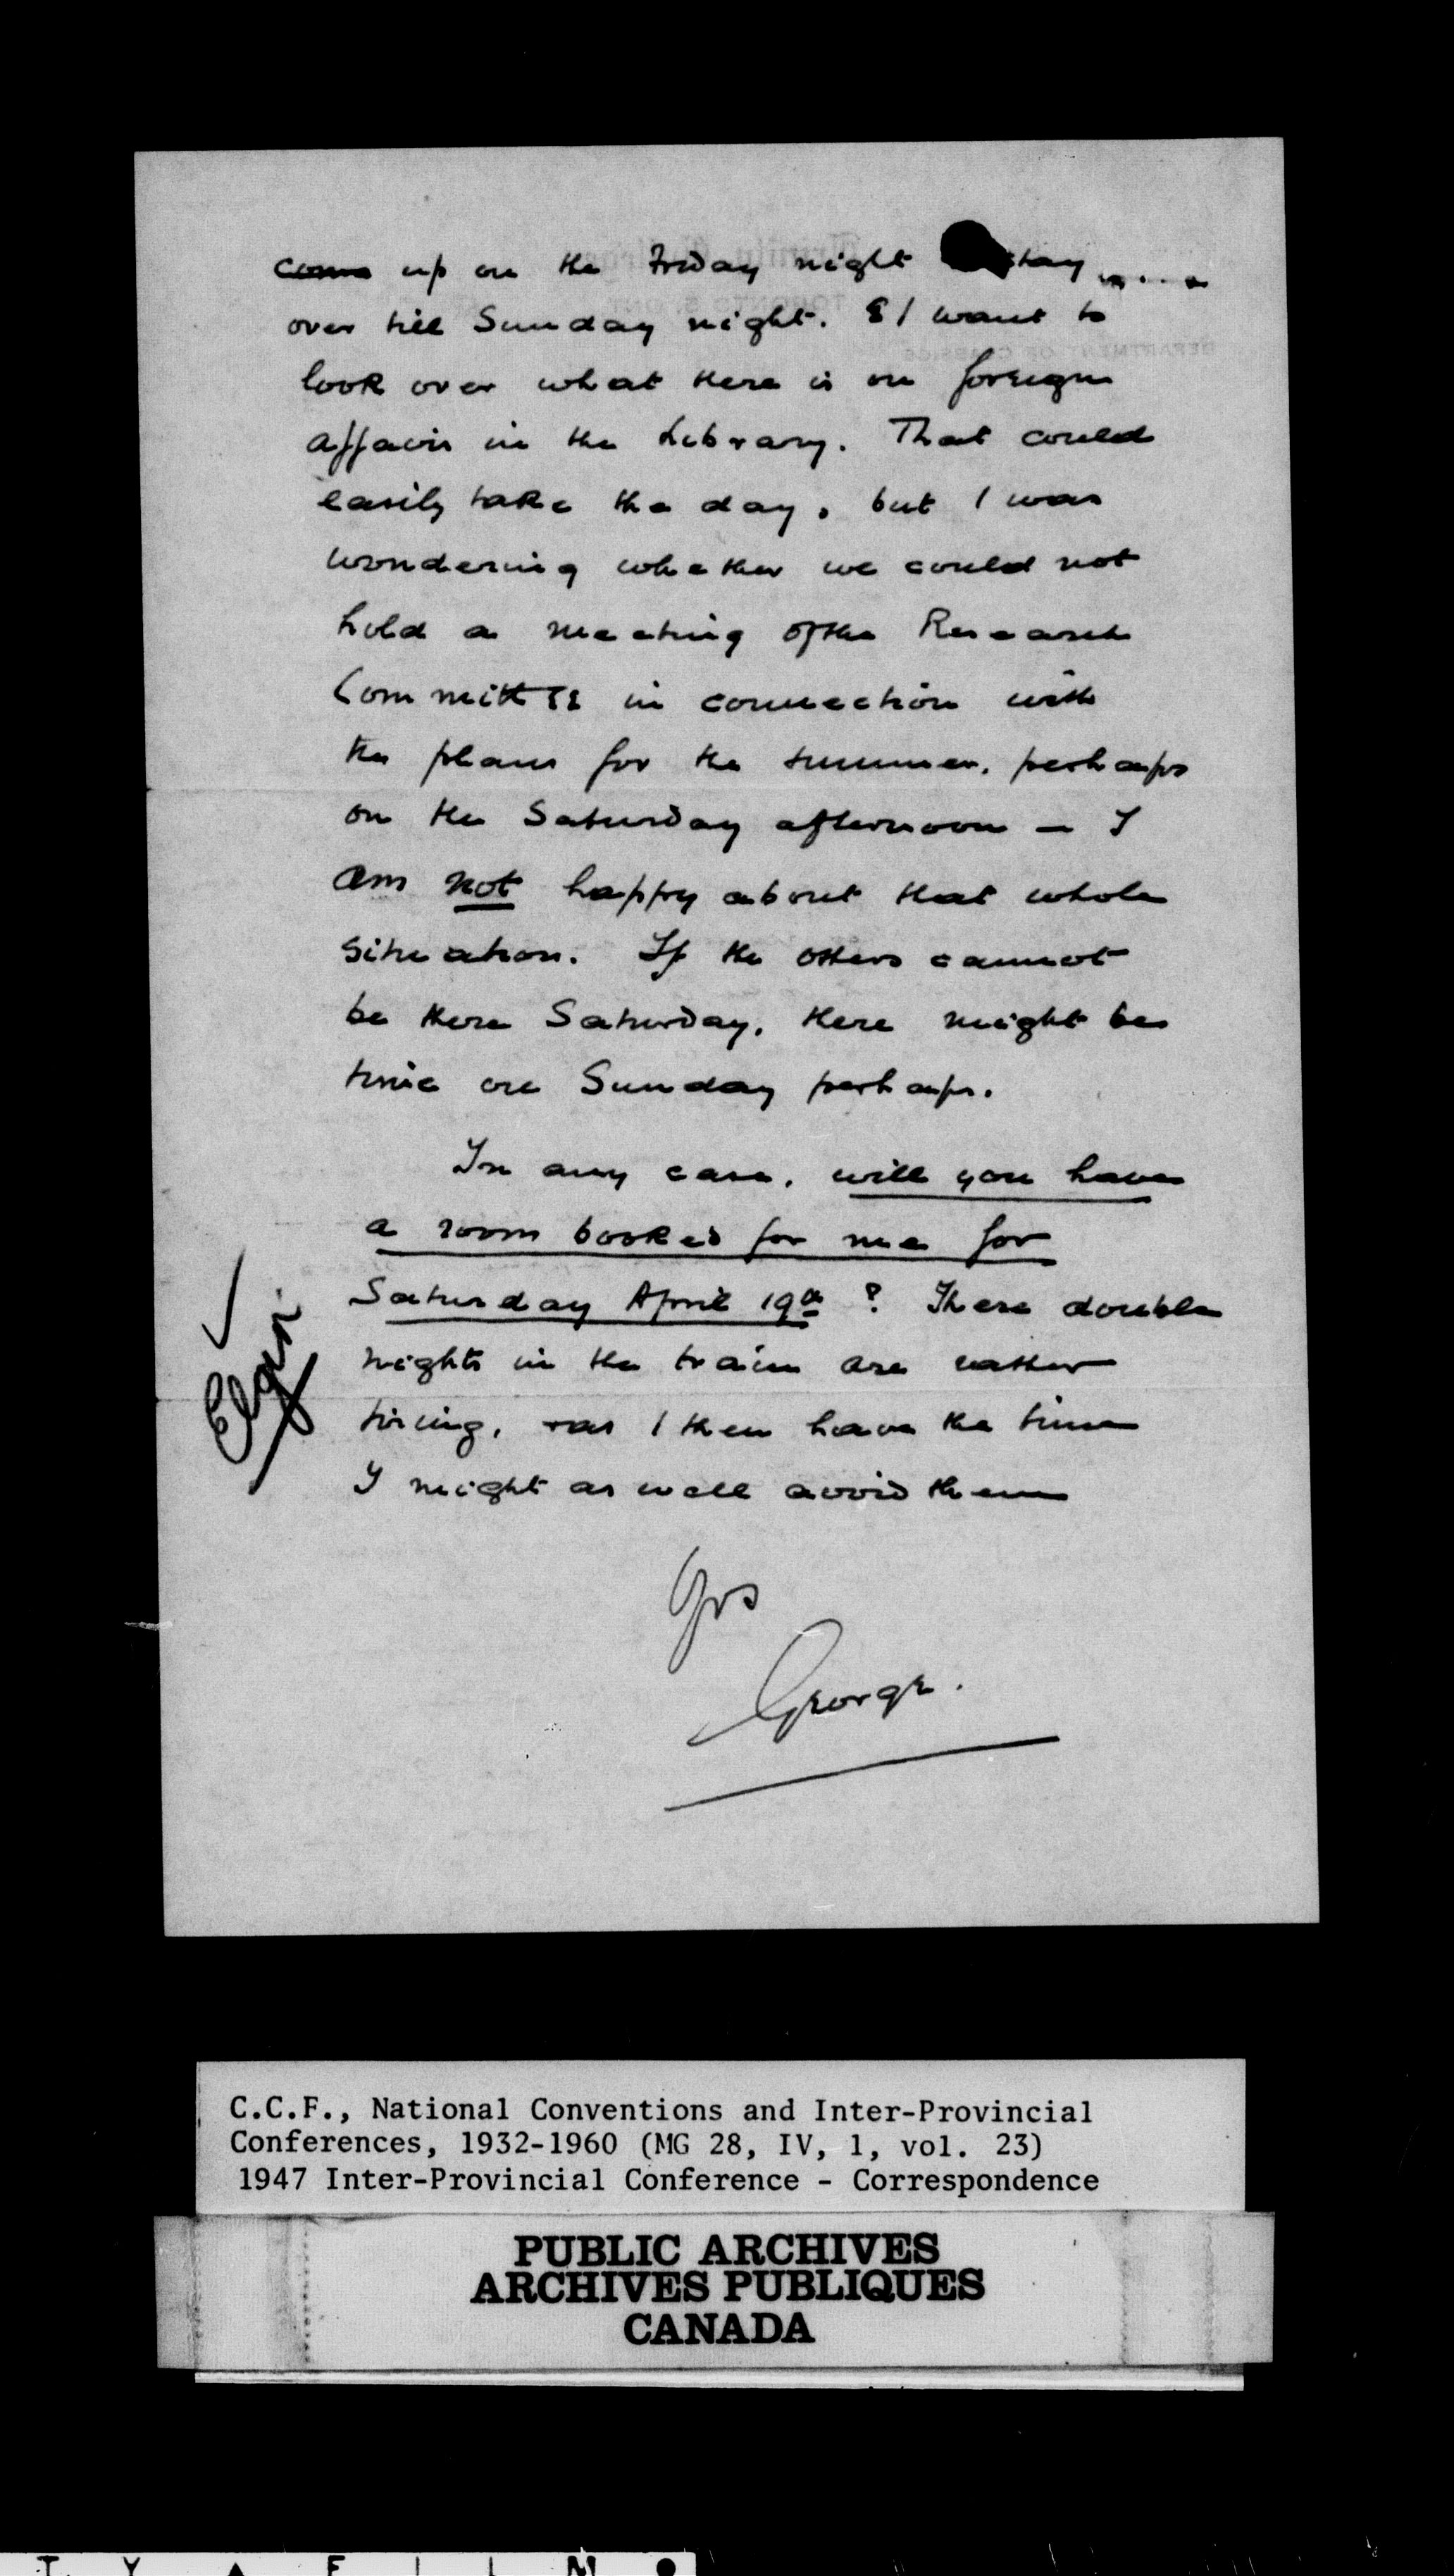 come up on the Friday night stay
over till Sunday night. & I want to
look over what there is on foreign
affairs in the Library. That could
easily take the day, but I was
wondering whether we could not
hold a meeting of the Research
Committee in connection with
the plans for the summer, perhaps
on the Saturday afternoon — I
am not happy about that whole
situation. If the others cannot
be there Saturday, there might be
time on Sunday perhaps.
In any case, will you have
a room booked for me for
Saturday April 19th? These double
nights in the train are rather
tiring, & as I then have the time
I might as well avoid them
Elgin
Yrs
George.
C.C.F., National Conventions and Inter-Provincial
Conferences, 1932-1960 (MG 28, IV, 1, vol. 23)
1947 Inter-Provincial Conference - Correspondence
PUBLIC ARCHIVES
ARCHIVES PUBLIQUES
CANADA